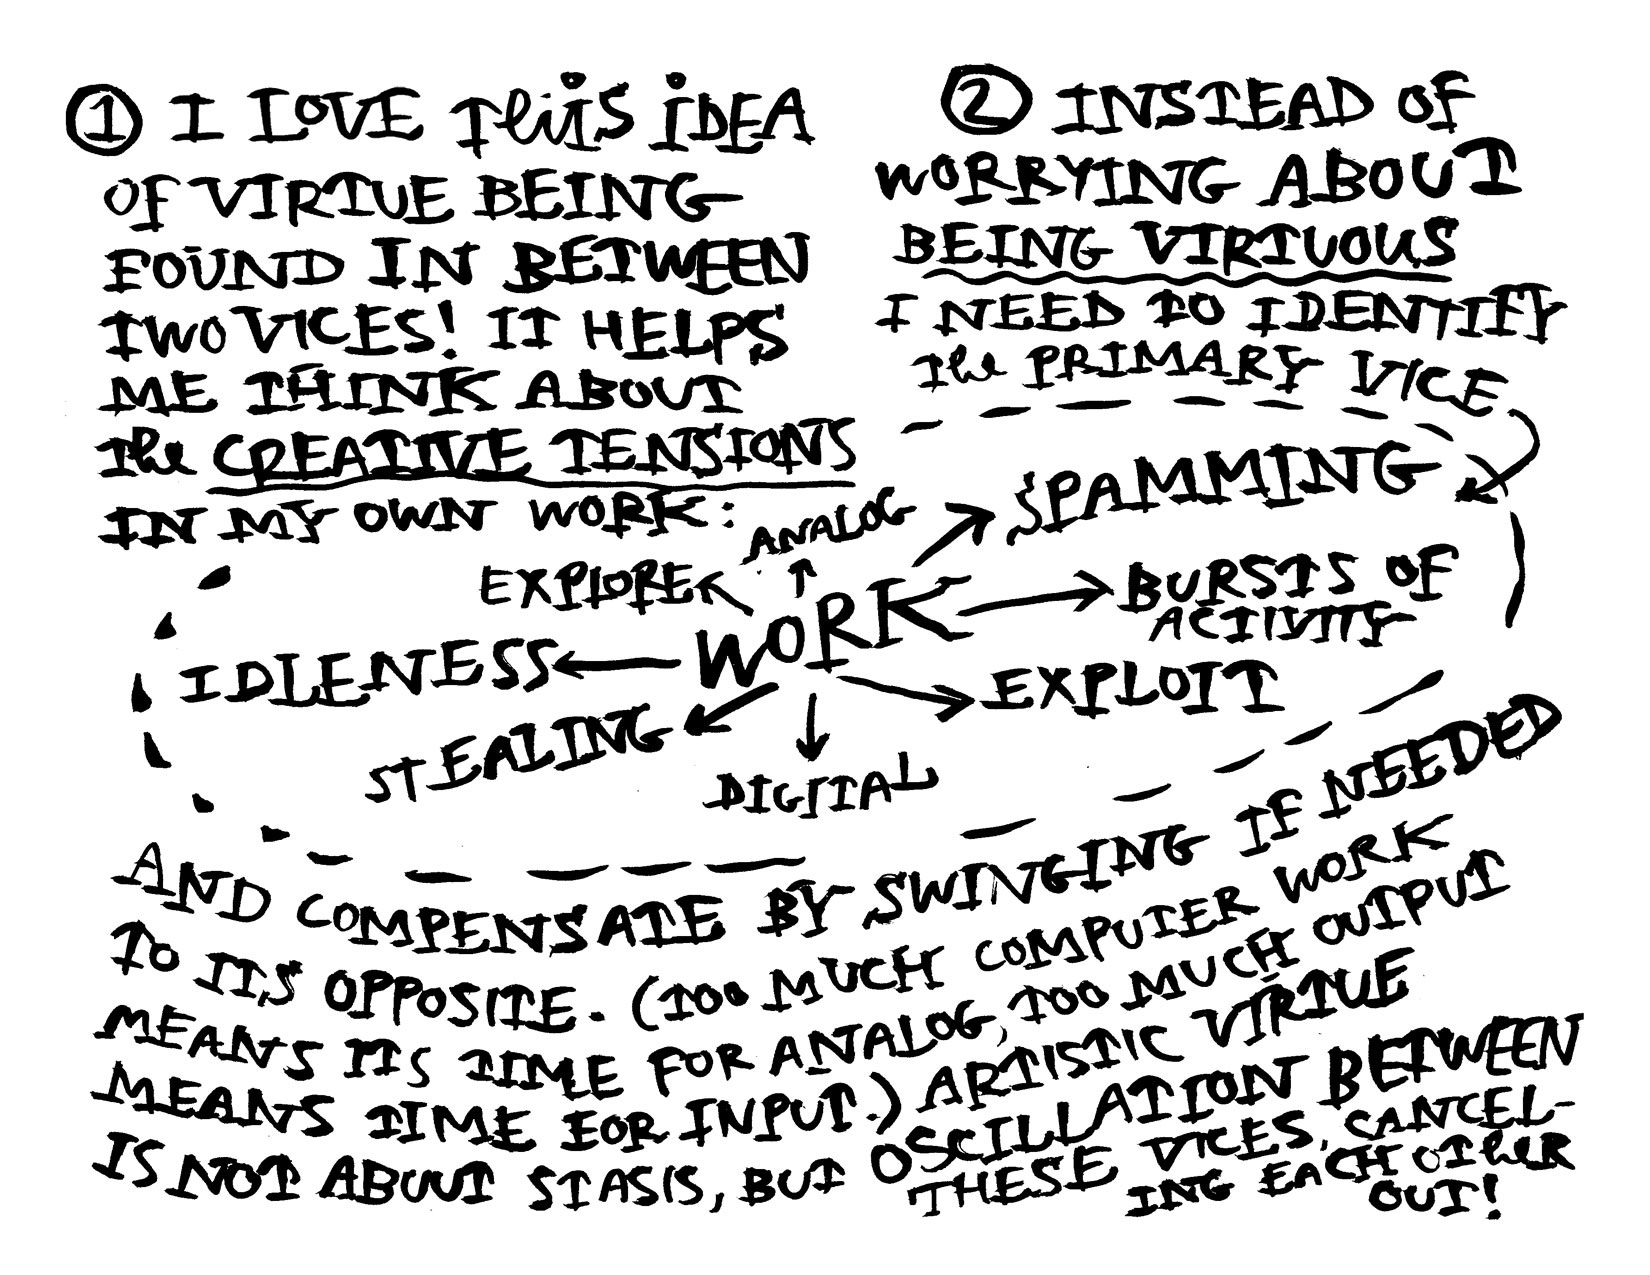 ① I LOVE THIS IDEA
OF VIRTUE BEING
FOUND IN BETWEEN
TWO VICES! IT HELPS
ME THINK ABOUT
THE CREATIVE TENSIONS
IN MY OWN WORK:
② INSTEAD OF
WORRYING ABOUT
BEING VIRTUOUS
I NEED TO IDENTIFY
THE PRIMARY VICE
ANALOG
SPAMMING
EXPLORE
WORK
BURSTS OF
ACTIVITY
IDLENESS
EXPLOIT
STEALING
DIGITAL
AND COMPENSATE BY SWINGING IF NEEDED
TO ITS OPPOSITE. (TOO MUCH COMPUTER WORK
MEANS ITS TIME FOR ANALOG, TOO MUCH OUTPUT
MEANS TIME FOR INPUT.) ARTISTIC VIRTUE
IS NOT ABOUT STASIS, BUT OSCILLATION BETWEEN
THESE VICES, CANCEL-
ING EACH OTHER
OUT!